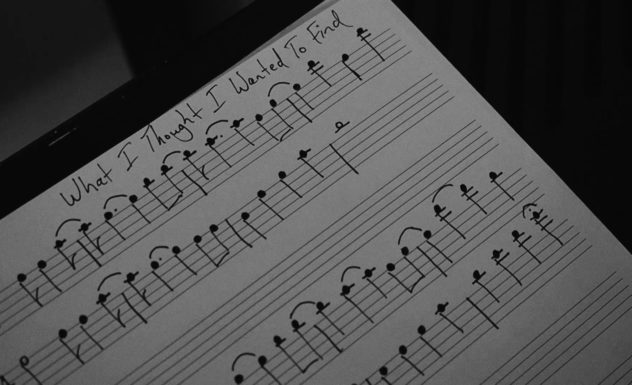 What I Thought I Wanted To Find